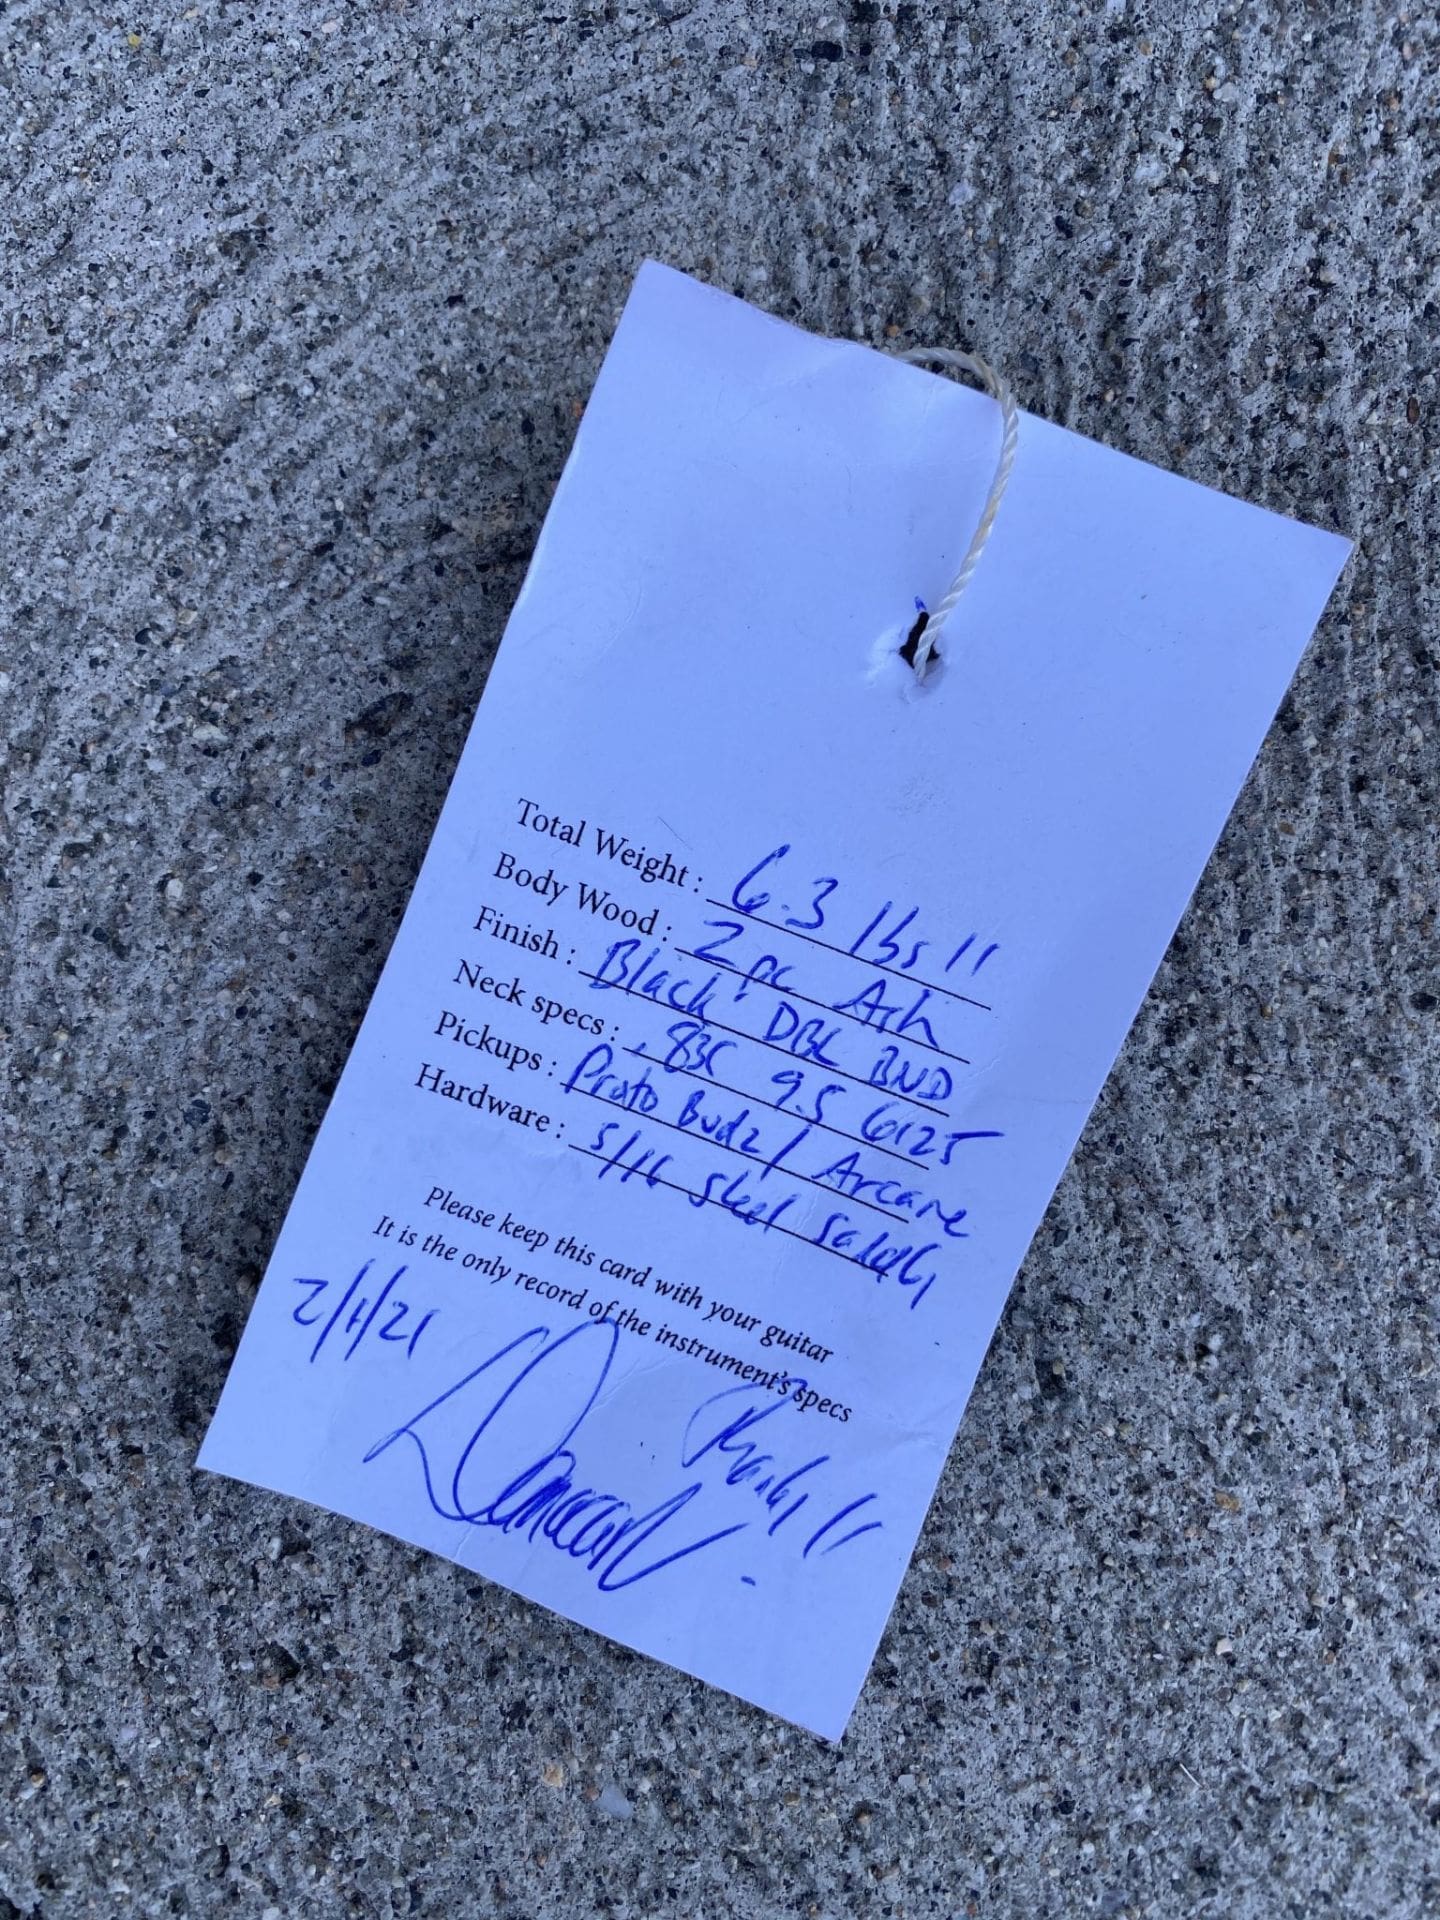 Total Weight : 6.3 lbs !!
Body Wood : 2 pc Ash
Finish : Black DBL BND
Neck specs : .83C 9.5 6125
Pickups : Proto Budz / Arcane
Hardware : 5/16 Steel
Please keep this card with your guitar
It is the only record of the instrument's specs
2/1/21